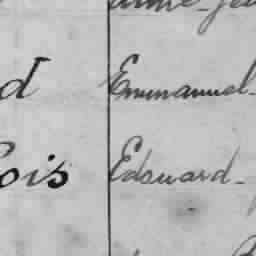 d Emmanuel-
ois Edouard-